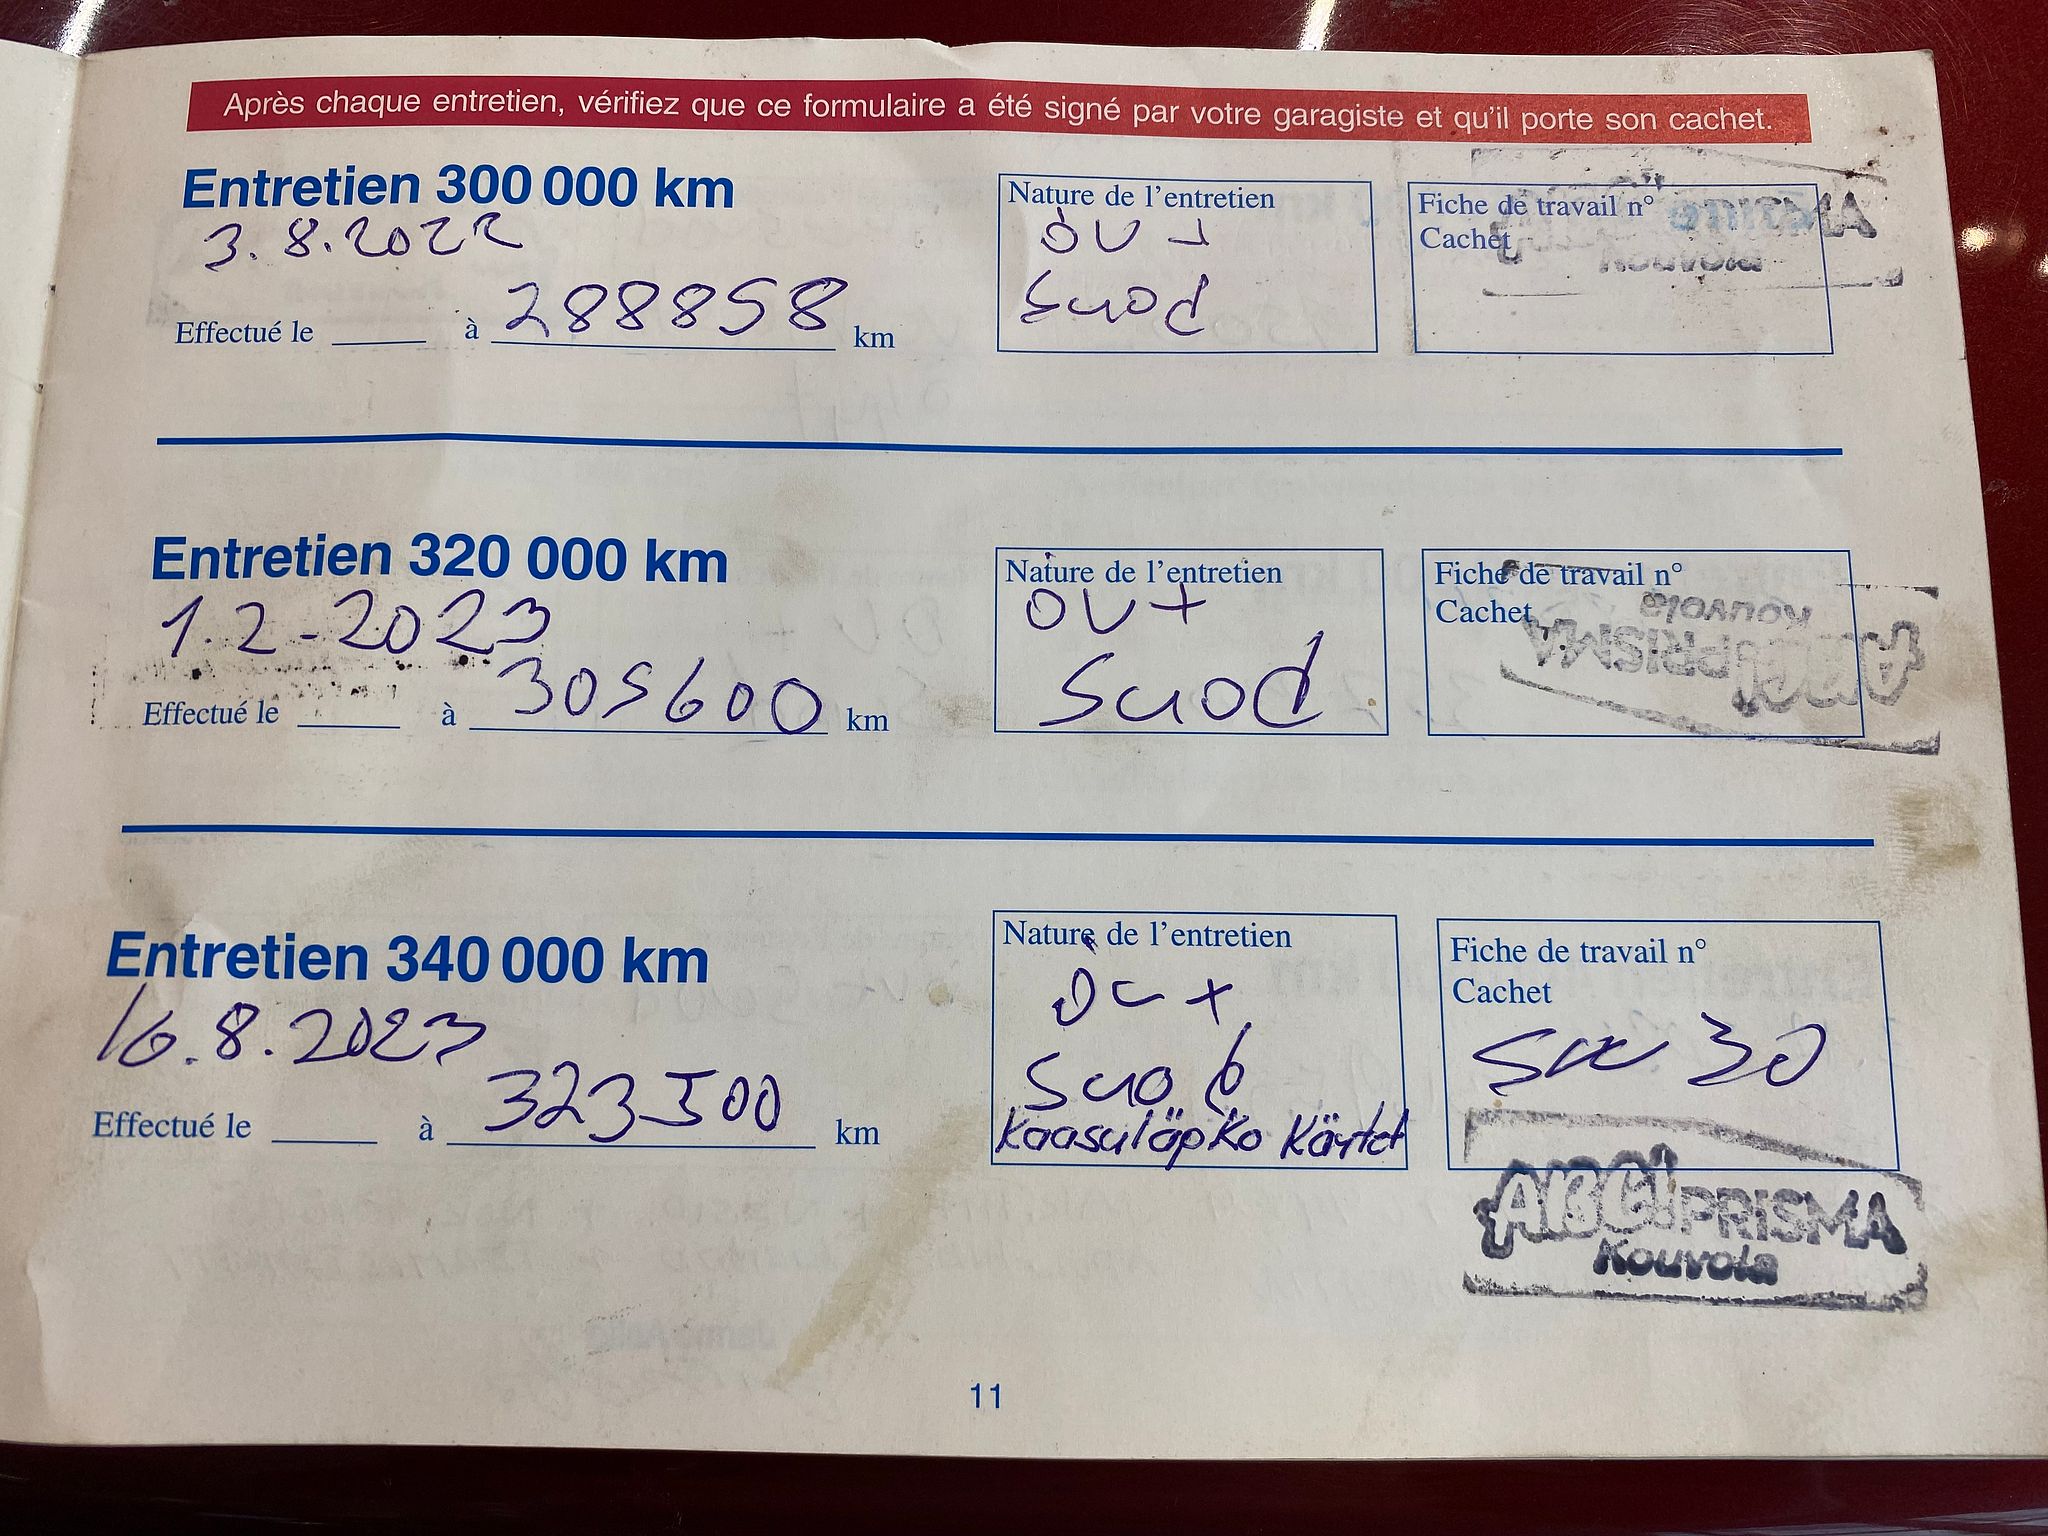 Après chaque entretien, vérifiez que ce formulaire a été signé par votre garagiste et qu'il porte son cachet.
Entretien 300 000 km
3.8.2022
Effectué le à 288858 km
Nature de l'entretien
öv +
suod
Fiche de travail n°
Cachet
PRISMA
Kouvola
Entretien 320 000 km
1.2-2023
Effectué le à 305600 km
Nature de l'entretien
öv +
suod
Fiche de travail n°
Cachet
ABC! PRISMA
Kouvola
Entretien 340 000 km
16.8.2023
Effectué le à 323500 km
Nature de l'entretien
öv +
suod
Kaasuläpkö Käytet
Fiche de travail n°
Cachet
30
ABC! PRISMA
Kouvola
11